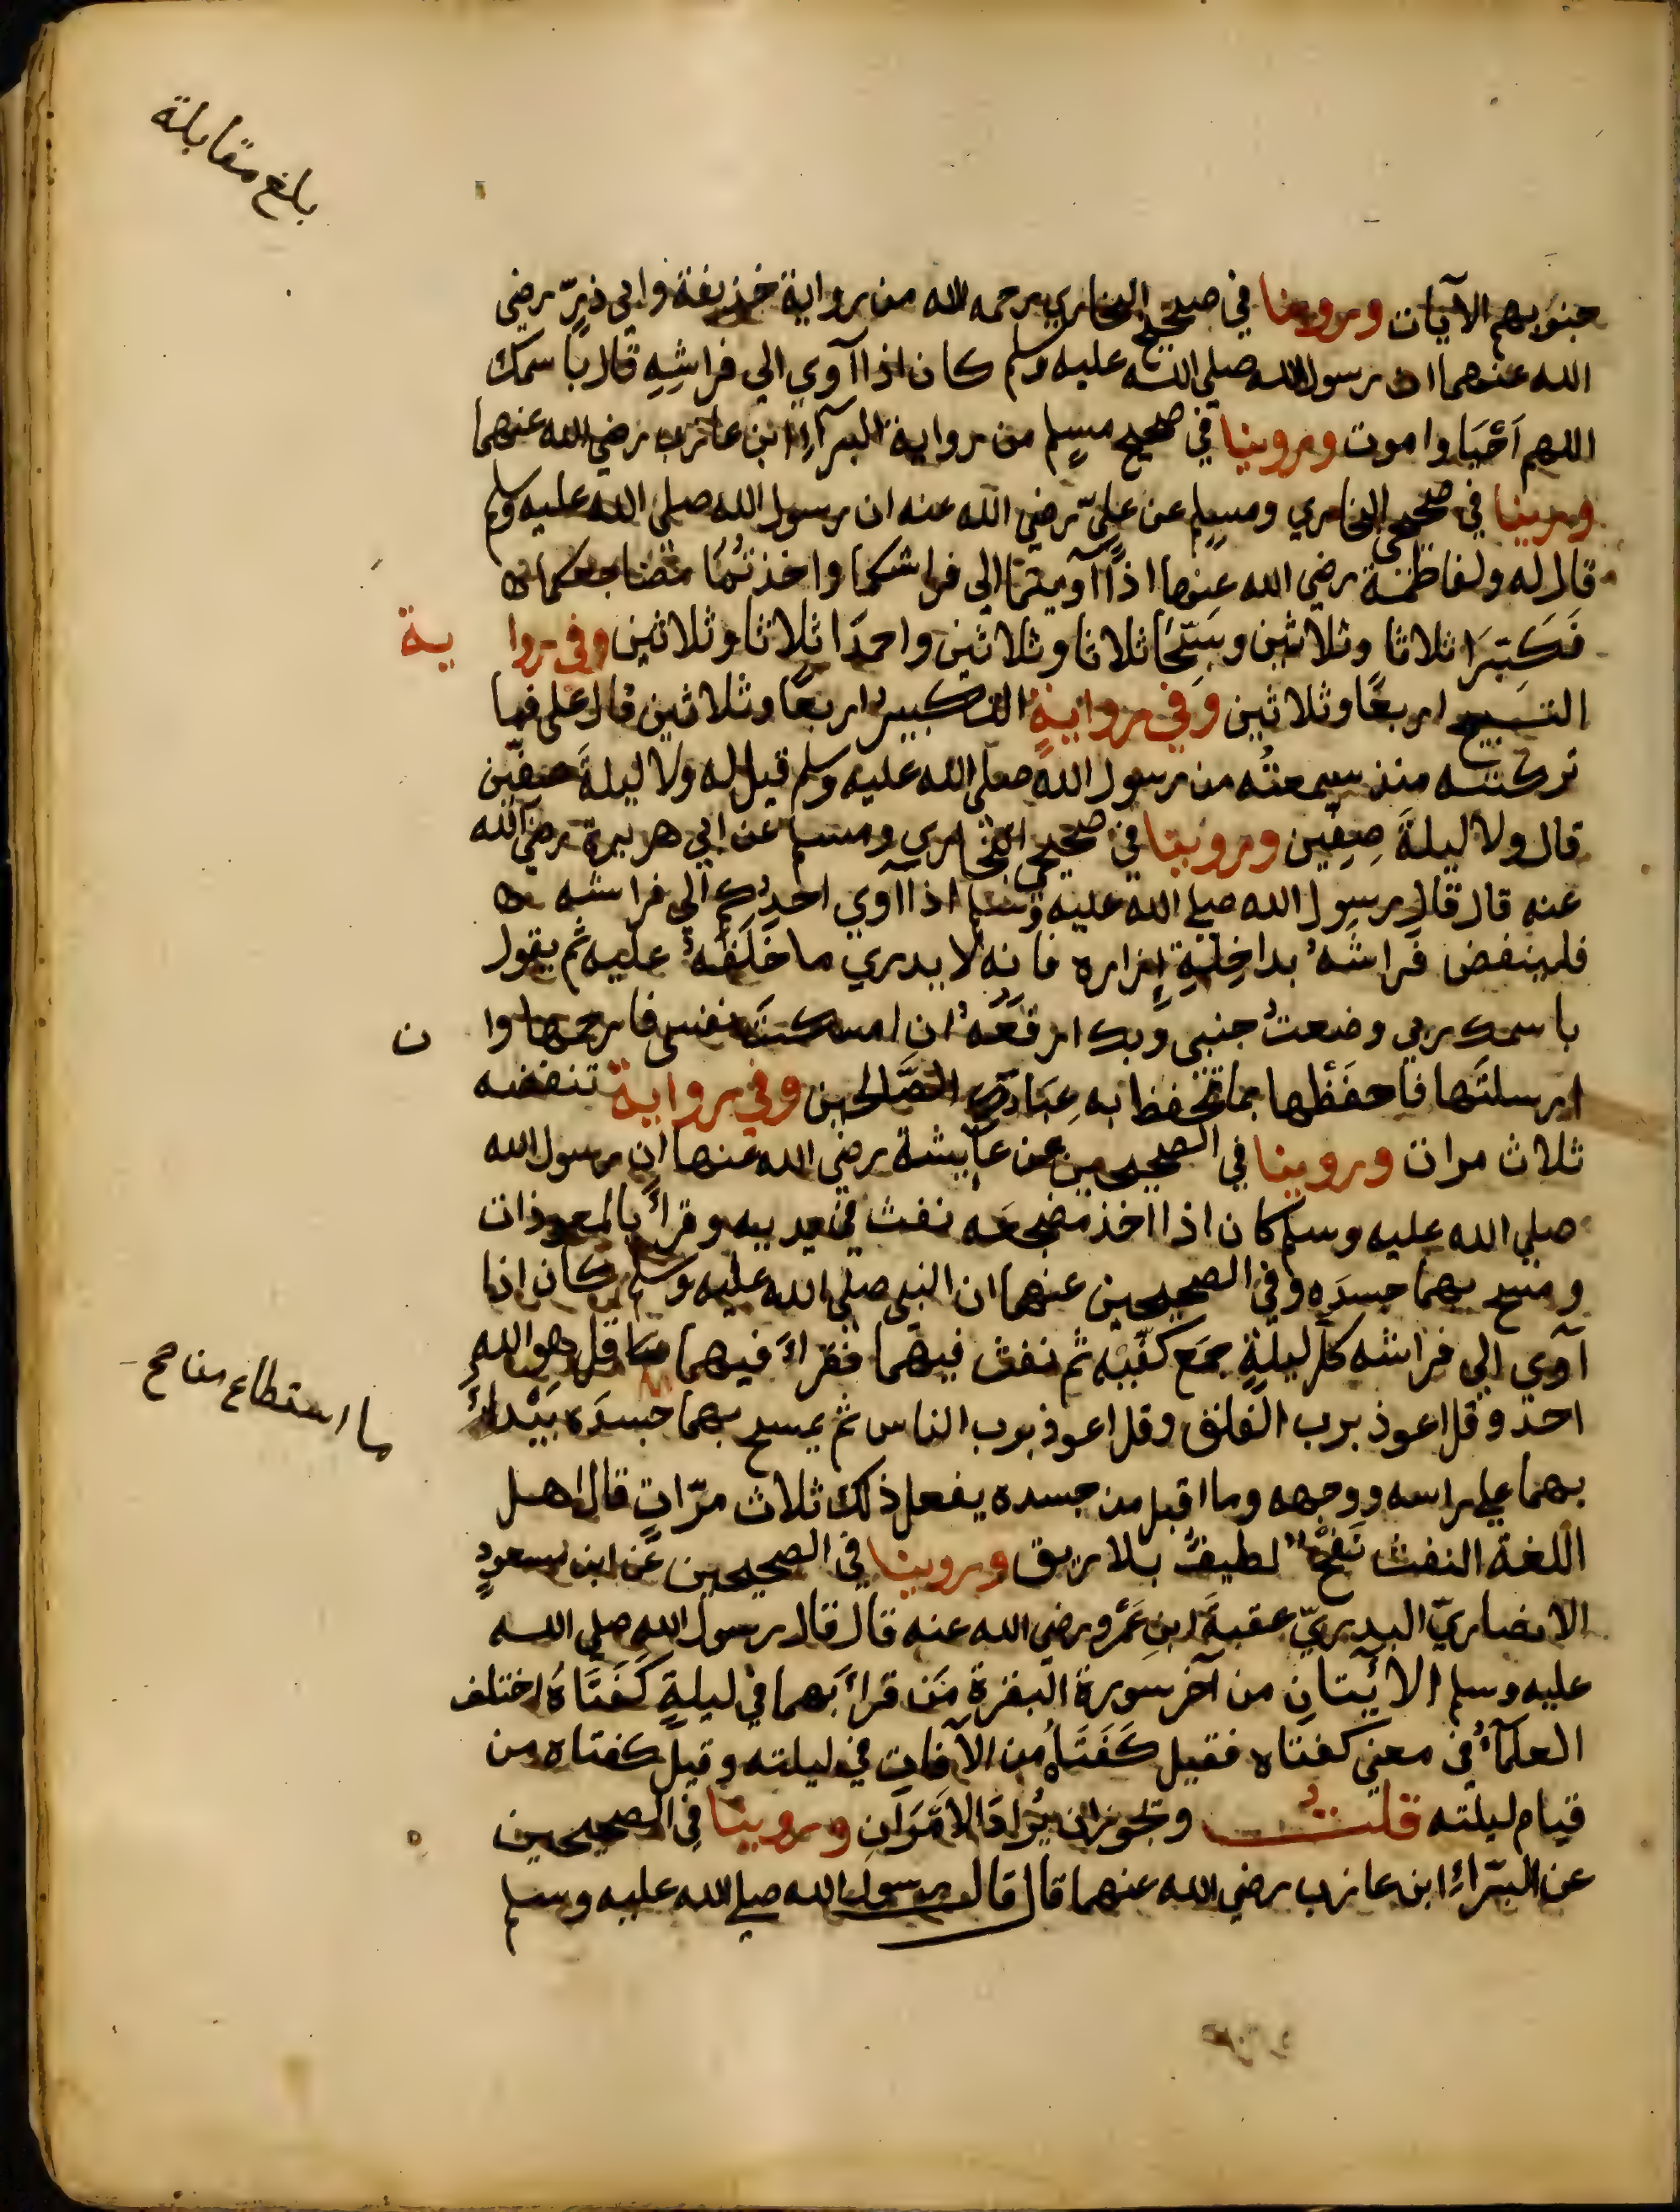 بلغ مقابلة
جنوبهم الآيات وروينا في صحيح البخاري رحمه الله من رواية حذيفة وابي ذرّ رضي
الله عنهما ان رسول الله صلى الله عليه وسلم كان اذا آوي الي فراشِهِ قال باسمك
اللهم اَحْيَا واموت وروينا في صحيح مسلم من رواية البرآءِ ابن عازب رضي الله عنهما
وروينا في صحيحي البخاري ومسلم عن عليّ رضي الله عنه ان رسول الله صلى الله عليه وسلم
قال له ولفاطمة رضي الله عنهما اذا آويتما الي فراشكما واخذتُما مضاجعكما
فَكَبِّرَا ثلاثا وثلاثين وسَبِّحَا ثلاثا وثلاثين واحمدَا ثلاثا وثلاثين وفي رواية
التسبيح اربعًا وثلاثين وَفي روايةٍ التكبير اربعًا وثلاثين قال علي فما
تركته منذ سمعتُه من رسول الله صلى الله عليه وسلم قيل له ولا ليلةَ صفّين
قال ولا ليلةَ صِفِين وروينا في صحيحي البخاري ومسلم عن ابي هريرة رضي الله
عنه قال قال رسول الله صلي الله عليه وسلم اذا آوي احدكم الي فراشه
فلينفض فراشَهُ بداخِلَةِ إِزاره فانه لا يدري ما خَلَفَهُ عليه ثم يقول
باسمك ربي وضعتُ جنبي وبك ارفعُه ان امسكتَ نفسي فارحمها وان
ارسلتَها فاحفَظْها بما تحفظ به عِبَادَك الصَّالحين وفي رواية تنفضه
ثلاث مرات وروينا في الصحيحين عن عآيشة رضي الله عنها ان رسول الله
صلي الله عليه وسلم كان اذا اخذ مضجعَه نفث في يديه وقرأ بالمعوذات
ومسح بهما جسدَه وفي الصحيحين عنهما ان النبي صلي الله عليه وسلم كان اذا
آوي الي فراشه كل ليلةٍ جمَع كفّيْه ثم نفث فيهما فقرأَ فيهما قل هو الله
احد وقل اعوذ برب الفلق وقل اعوذ برب الناس ثم يمسح بهما جسدَه يَبْدأُ
ما استطاع من صح
بهما علي راسه ووجهه وما اقبل من جسده يفعل ذلك ثلاث مرّاتٍ قال اهل
اللغة النفث نَفْخٌ لطيفٌ بلا ريق وروينا في الصحيحين عن ابن مسعودٍ
الانصاريّ البدريّ عقبةَ ابنِ عَمْرو رضي الله عنه قال قال رسول الله صلي الله
عليه وسلم الايتانِ من آخر سورة البقرةِ مَن قرأَ بهما في ليلةٍ كَفَتَاهُ اختلف
العلمآءُ في معني كفتاه فقيل كَفَتَاهُ من الآفاتِ في ليلته وقيل كفتاه من
قيام ليلته قلتُ ويجوز ان يُرادَ الامْرَانِ وروينا في الصحيحين
عن البَرَاءِ ابن عازب رضي الله عنهما قال قال رسول الله صلي الله عليه وسلم